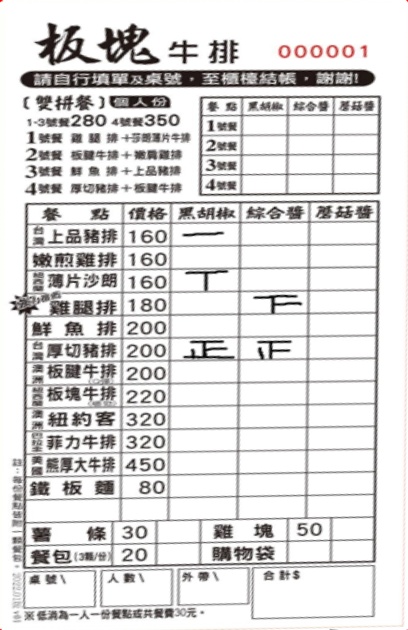 板塊牛排 000001
請自行填單及桌號，至櫃檯結帳，謝謝!
〔雙拼餐〕個人份
1-3號餐280 4號餐350
1號餐 雞腿排+莎朗薄片牛排
2號餐 板腱牛排+嫩肩雞排
3號餐 鮮魚排+上品豬排
4號餐 厚切豬排+板腱牛排
餐點 黑胡椒 綜合醬 蘑菇醬
1號餐
2號餐
3號餐
4號餐
餐點 價格 黑胡椒 綜合醬 蘑菇醬
台灣 上品豬排 160 一
嫩煎雞排 160
紐西蘭 薄片沙朗 160 丅
雞腿排 180 下
鮮魚排 200
台灣 厚切豬排 200 正 正
澳洲 板腱牛排 200
紐西蘭 板塊牛排 220
澳洲 紐約客 320
巴拉圭 菲力牛排 320
美國 熊厚大牛排 450
鐵板麵 80
薯條 30 雞塊 50
餐包(3顆/份) 20 購物袋
桌號\ 人數\ 外帶\ 合計$
※低消為一人一份餐點或共餐費30元。
註：每份餐點皆附一顆餐包。